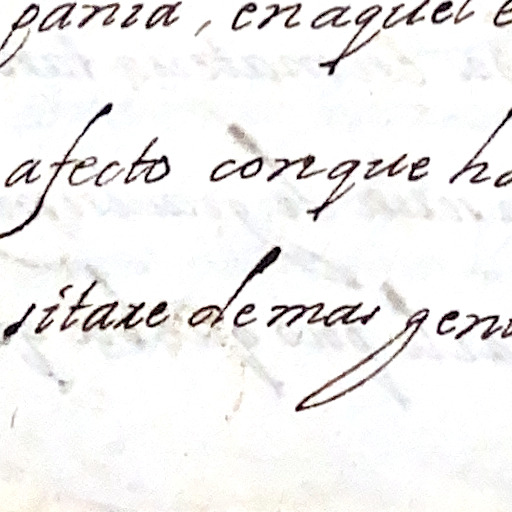 pania, enaquel e
afecto conque ha
sitare demas gen